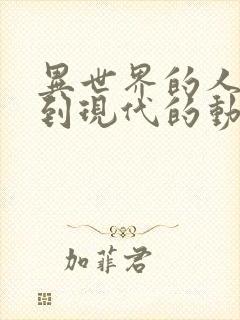 異世界的人
到現代的動
加菲君